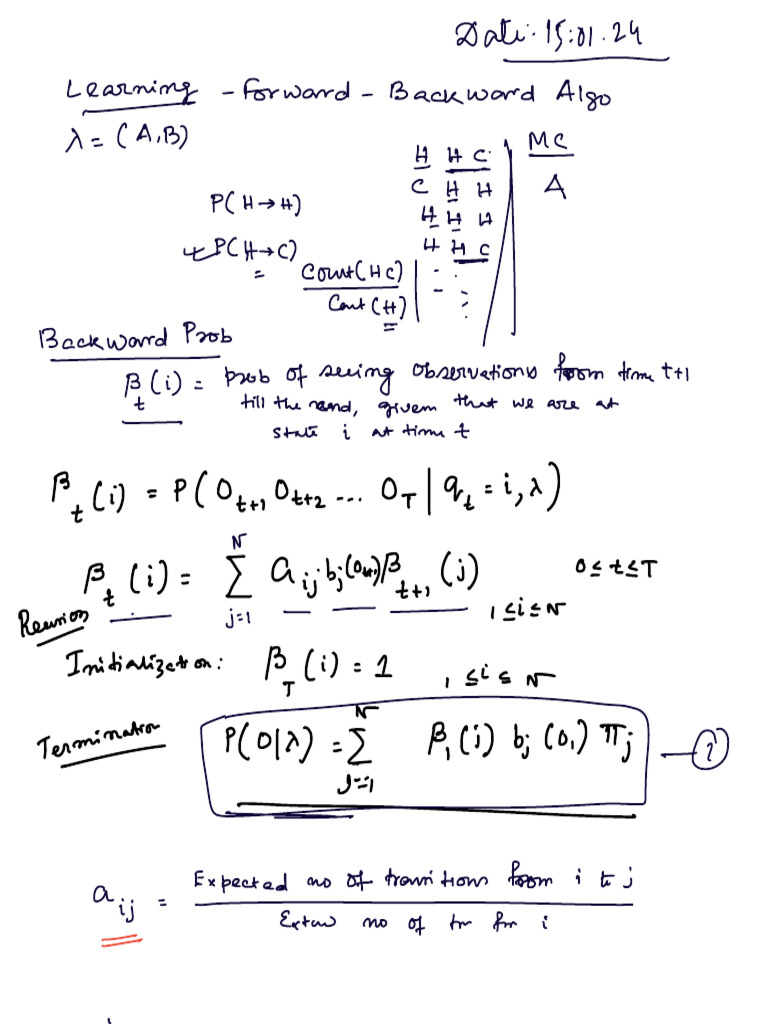 Date: 15:01.24
Learning - Forward - Backward Algo
λ = (A,B)
H H C | MC
C H H A
P(H→H)
H H H
P(H→C) H H C
= Count(HC) / Cont(H)
Backward Prob
β_t(i) = prob of seeing observations from time t+1
till the end, given that we are at
state i at time t
β_t(i) = P(O_{t+1}, O_{t+2} ... O_T | q_t = i, λ)
β_t(i) = Σ_{j=1}^{N} a_{ij} b_j(O_{t+1}) β_{t+1}(j) 0 ≤ t ≤ T
Recursion 1 ≤ i ≤ N
Initialization: β_T(i) = 1 , 1 ≤ i ≤ N
Termination P(O|λ) = Σ_{j=1}^{N} β_1(j) b_j(O_1) π_j —②
a_{ij} = Expected no of transitions from i to j
no of tr fm i